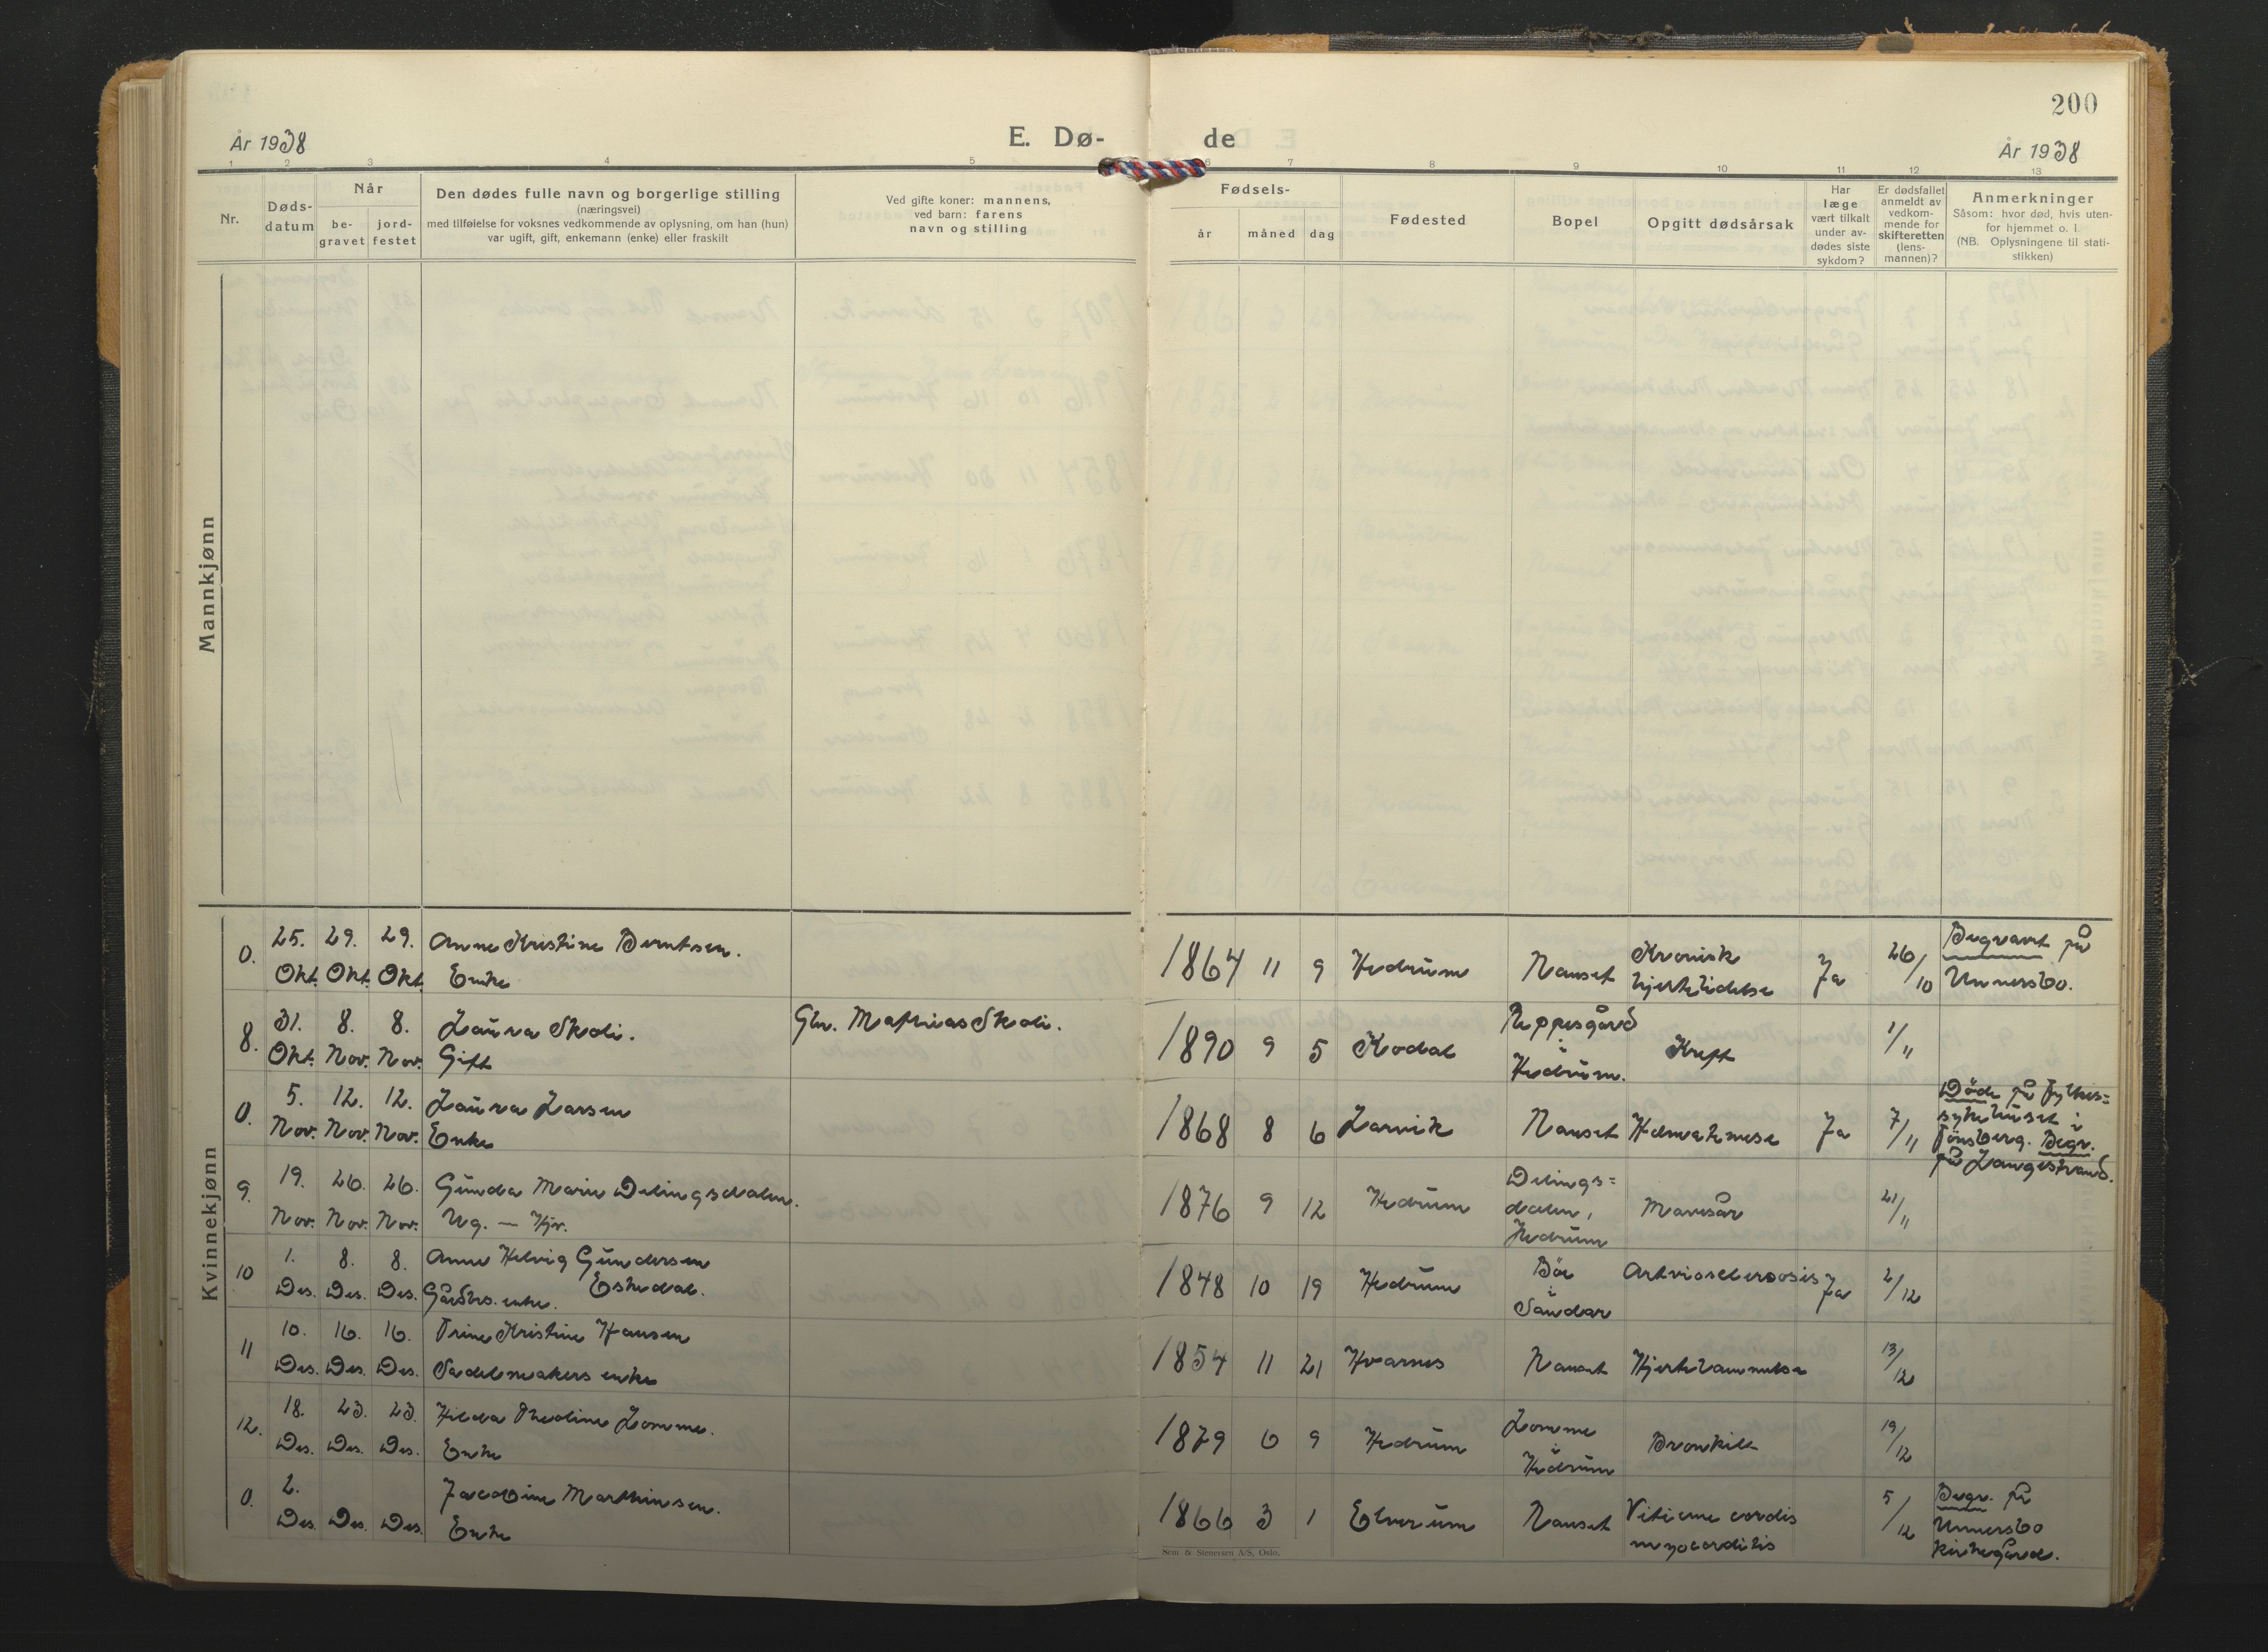 200
År 1938
E. Dø-
de
År 1938
1 2 3 4 5 6 7 8 9 10 11 12 13
Nr.
Døds-
datum
Når
be-
gravet
jord-
festet
Den dødes fulle navn og borgerlige stilling
(næringsvei)
med tilføielse for voksnes vedkommende av oplysning, om han (hun)
var ugift, gift, enkemann (enke) eller fraskilt
Ved gifte koner: mannens,
ved barn: farens
navn og stilling
Fødsels-
år måned dag
Fødested
Bopel
Opgitt dødsårsak
Har
læge
vært tilkalt
under av-
dødes siste
sykdom?
Er dødsfallet
anmeldt av
vedkom-
mende for
skifteretten
(lens-
mannen)?
Anmerkninger
Såsom: hvor død, hvis uten-
for hjemmet o. l.
(NB. Oplysningene til stati-
stikken)
Mannkjønn
Kvinnekjønn
0. 25. 29. 29. Anne Kristine Berntsen.
Okt. Okt. Okt. Enke
1864 11 9 Hedrum Nanset Kronisk
hjertelidelse Ja 26/10 Begravet på
Unnersbo.
8. 31. 8. 8. Laura Skoli. Gbr. Mathias Skoli.
Okt. Nov. Nov. Gift
1890 9 5 Kodal
i
Hedrum. Kreft 1/11
0. 5. 12. 12. Laura Larsen
Nov. Nov. Nov. Enke
1868 8 6 Larvik Nanset Ja 7/11
Døde på fylkes=
sykehuset i
Tønsberg. Begr.
på Langestrand.
9. 19. 26. 26. Gunda Marie Delingsdalen.
Nov. Nov. Nov. Ug. — Hjv.
1876 9 12 Hedrum Delings=
dalen,
Hedrum Mavesår 21/11
10 1. 8. 8. Anne Helvig Gundersen
Eskedal.
Des. Des. Des. Gårdbr. enke.
1848 10 19 Hedrum Bøe
i
Sandar Arteriosclerosis Ja 2/12
11 10. 16. 16. Trine Kristine Hansen
Des. Des. Des. Sadelmakers enke
1854 11 21 Kvarnes Nanset Hjertelammelse 13/12
12. 18. 23. 23. Hilda Theoline Lomme.
Des. Des. Des. Enke
1879 6 9 Hedrum Lomme
i
Hedrum Bronkitt 19/12
0. 2. Jacobine Marthinsen.
Des. Des. Des. Enke
1866 3 1 Elverum Nanset Vitium cordis
myocarditis 5/12 Begr. på
Unnersbo
kirkegård.
Sem & Stenersen A/S, Oslo.